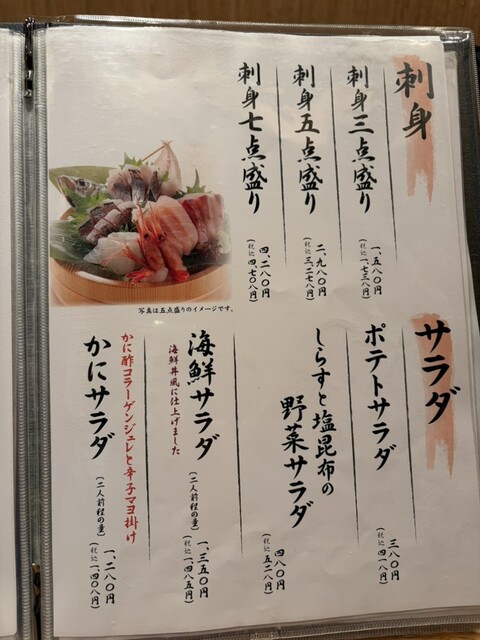 刺身
刺身三点盛り
一、五八〇円
(税込 一、七三八円)
刺身五点盛り
二、九八〇円
(税込 三、二七八円)
刺身七点盛り
四、二八〇円
(税込 四、七〇八円)
写真は五点盛りのイメージです。
サラダ
ポテトサラダ
三八〇円
(税込 四一八円)
しらすと塩昆布の
野菜サラダ
四八〇円
(税込 五二八円)
海鮮サラダ
海鮮丼風に仕上げました
(二人前程の量)
一、三五〇円
(税込 一、四八五円)
かに酢コラーゲンジュレと辛子マヨ掛け
かにサラダ
(二人前程の量)
一、二八〇円
(税込 一、四〇八円)